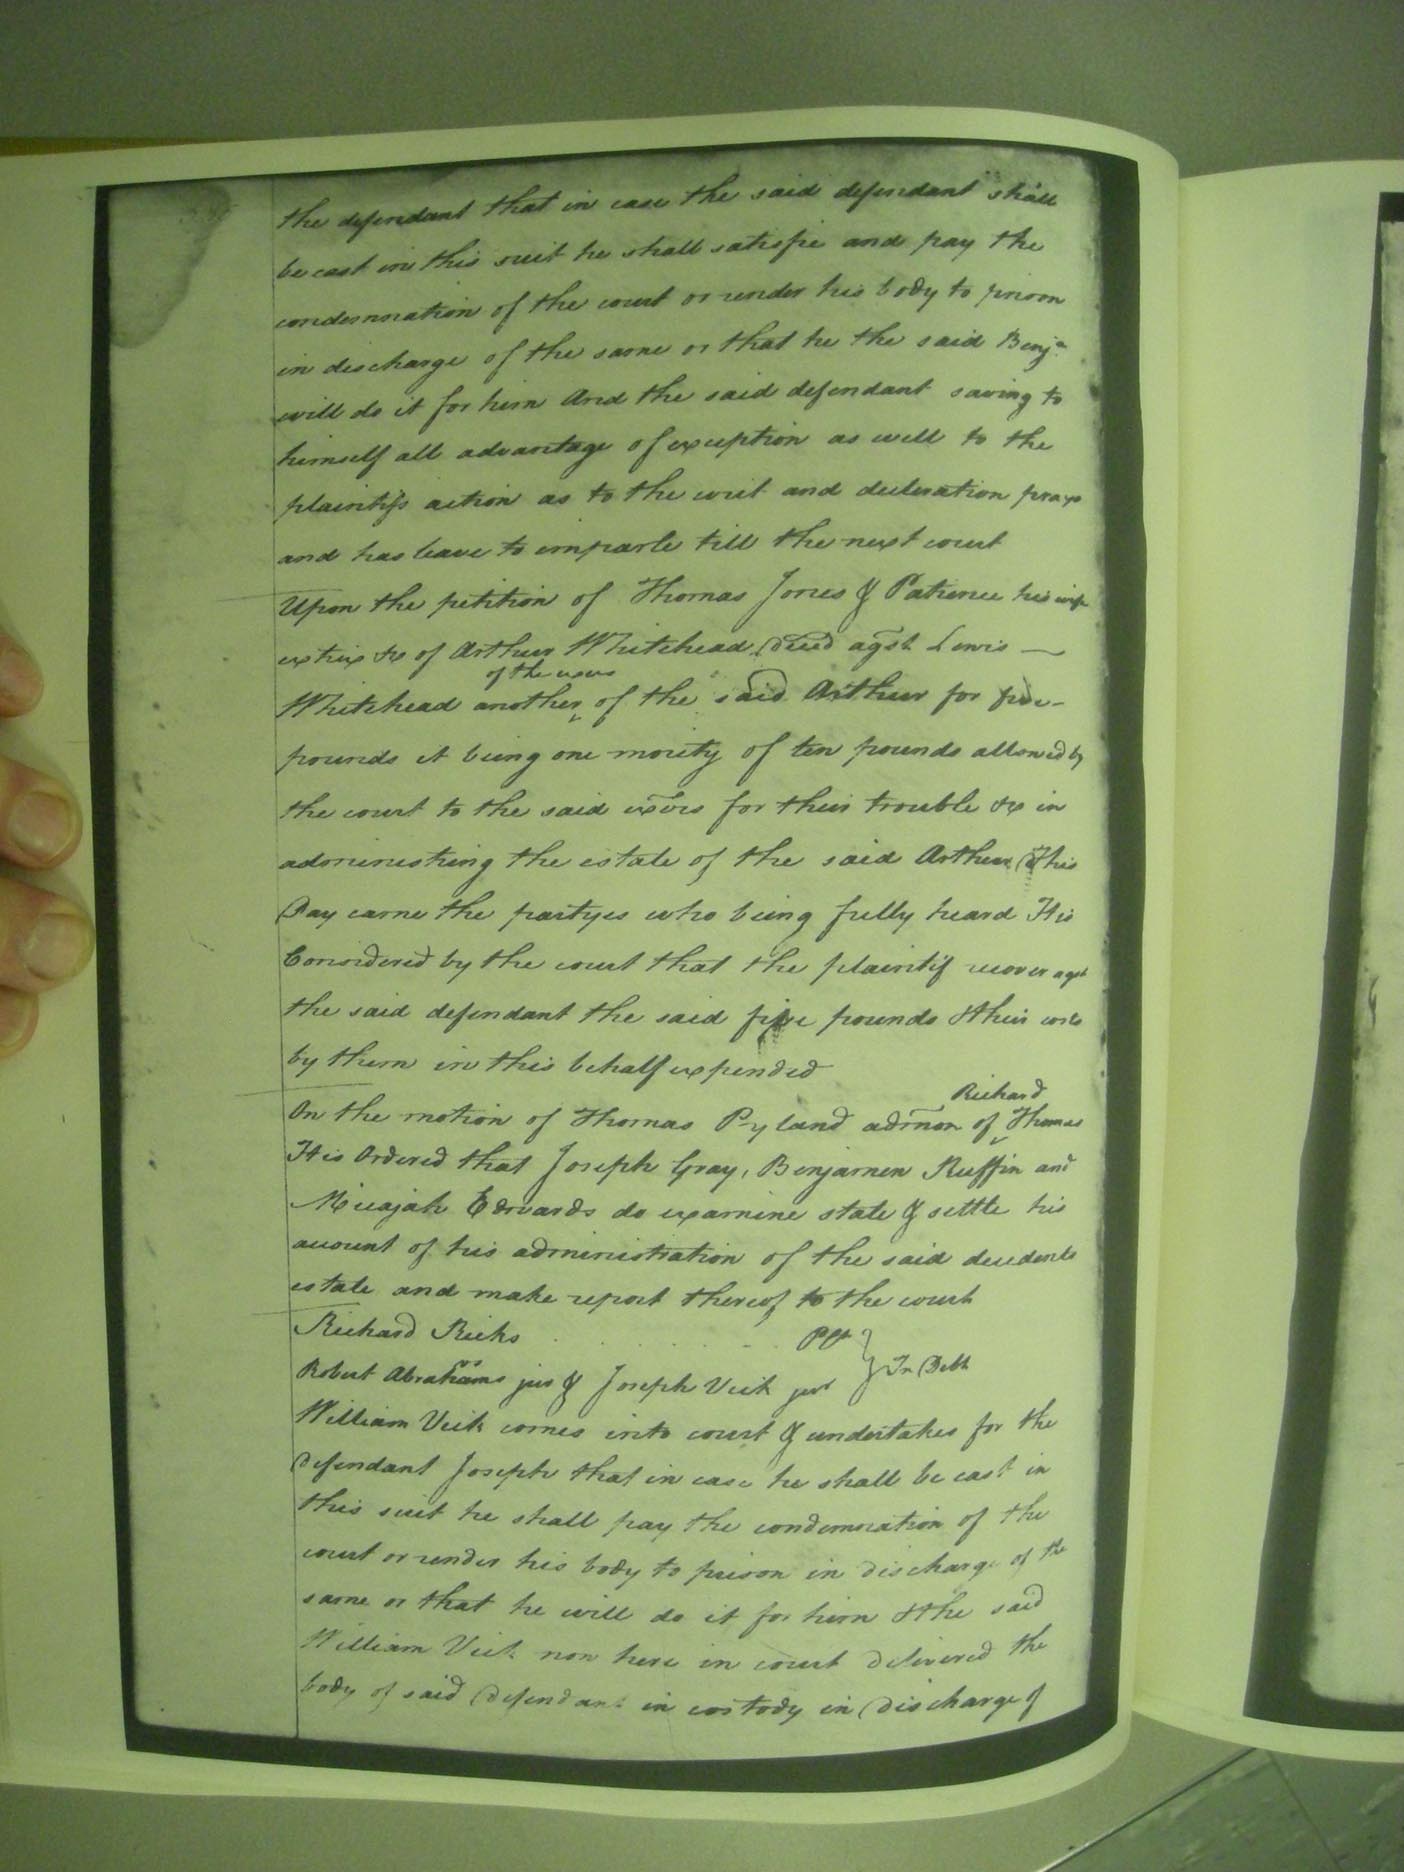 the defendant that in case the said defendant shall
be cast in this suit he shall satisfie and pay the
condemnation of the court or render his body to prison
in discharge of the same or that he the said Benja
will do it for him And the said defendant saving to
himself all advantage of exception as well to the
plaintifs action as to the writ and decleration prays
and has leave to imparle till the next court
Upon the petition of Thomas Jones & Patience his wife
extrix &c of Arthur Whitehead Decd agst Lewis
of the exors
Whitehead another of the said Arthur for five
pounds it being one moiety of ten pounds allowed by
the court to the said exors for their trouble &c in
administring the estate of the said Arthur This
Day came the partyes who being fully heard It is
Considered by the court that the plaintif recover agst
the said defendant the said five pounds & their costs
by them in this behalf expended
Richard
On the motion of Thomas Pyland admon of Thomas
It is Ordered that Joseph Gray, Benjamen Ruffin and
Micajah Edwards do examine state & settle his
account of his administration of the said decedents
estate and make report thereof to the court
Richard Ricks Plt
In Debt
Robert Abrahams jur & Joseph Vick jur
William Vick comes into court & undertakes for the
defendant Joseph that in case he shall be cast in
this suit he shall pay the condemnation of the
court or render his body to prison in discharge of the
same or that he will do it for him & the said
William Vick now here in court delivered the
body of said Defendant in custody in Discharge of